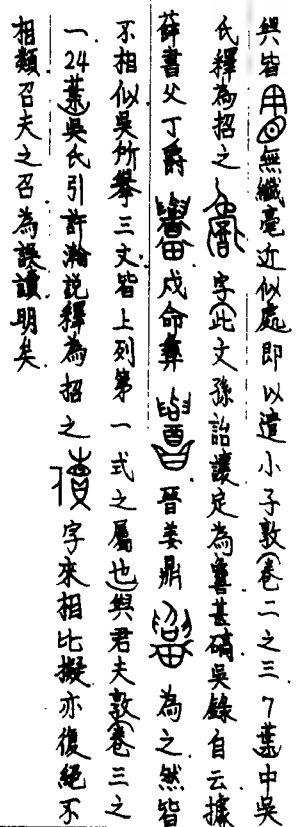 與皆無纖毫近似處即以遣小子敦（卷二之三7葉）中吳
氏釋為招之字（此文孫詒讓定為𩰫甚碻）吳錄自云據
薛書父丁爵戍命彝晉姜鼎為之然皆
不相似吳所舉三文皆上列第一式之屬也與君夫敦（卷三之
一24葉）吳氏引許瀚說釋為招之字來相比擬亦復絕不
相類召夫之召為誤讀明矣